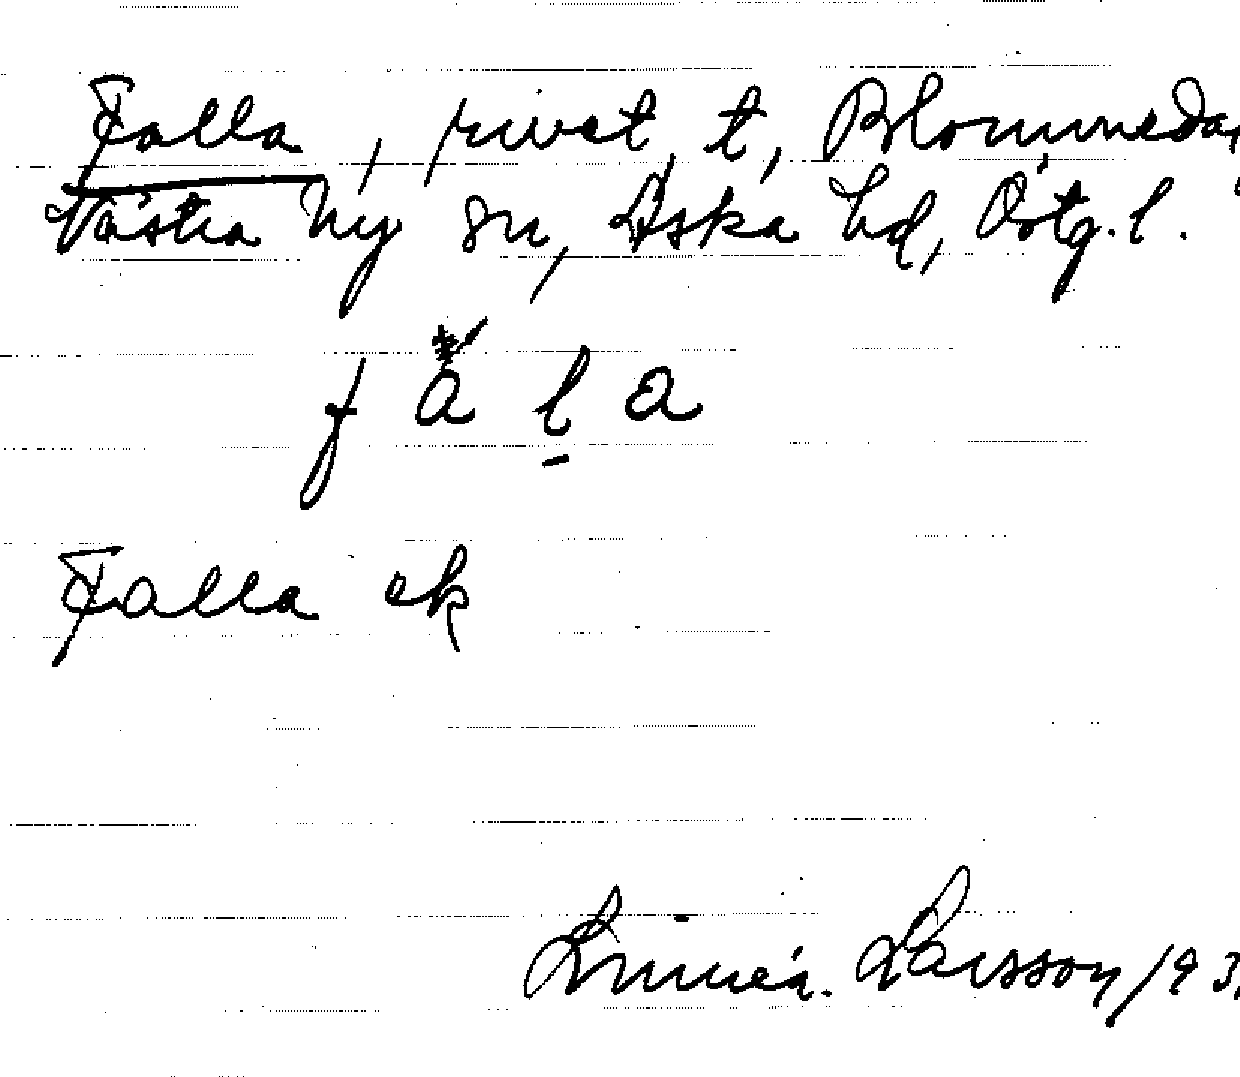 Falla, rivet t, Blommedal
Västra Ny sn, Aska hd, Östg. l.
f a l a
Falla ek
Linnéa Larsson /193